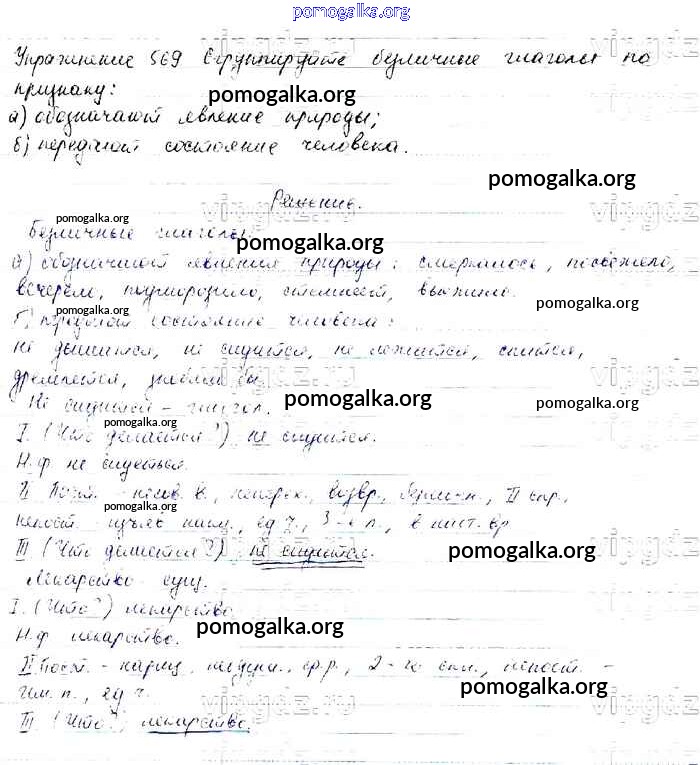 pomogalka.org
Упражнение 569 Сгруппируйте безличные глаголы по
признаку:
pomogalka.org
а) обозначают явление природы;
б) передают состояние человека.
pomogalka.org
Решение.
pomogalka.org
Безличные глаголы:
pomogalka.org
а) обозначают явления природы: смеркалось, посвежело,
вечерело, подморозило, стемнеет,
pomogalka.org
pomogalka.org
б) передают состояние человека:
не дышится, не сидится, не лежится, спится,
дремлется,
pomogalka.org
pomogalka.org
Не сидится - глагол.
pomogalka.org
I. (Что делается?) не сидится.
Н.ф. не сидеться.
II Пост. - несов. в., неперех., возвр., II спр.,
pomogalka.org
непост. - изъяв. накл., ед. ч., 3-е л., в наст. вр.
pomogalka.org
III (Что делается?) не сидится.
Лекарство - сущ.
I. (Что?) лекарство.
pomogalka.org
Н.ф. лекарство.
II Пост. - нариц., неодуш., ср. р., 2-е скл., непост. -
им. п., ед. ч.
pomogalka.org
III (Что?) лекарство.